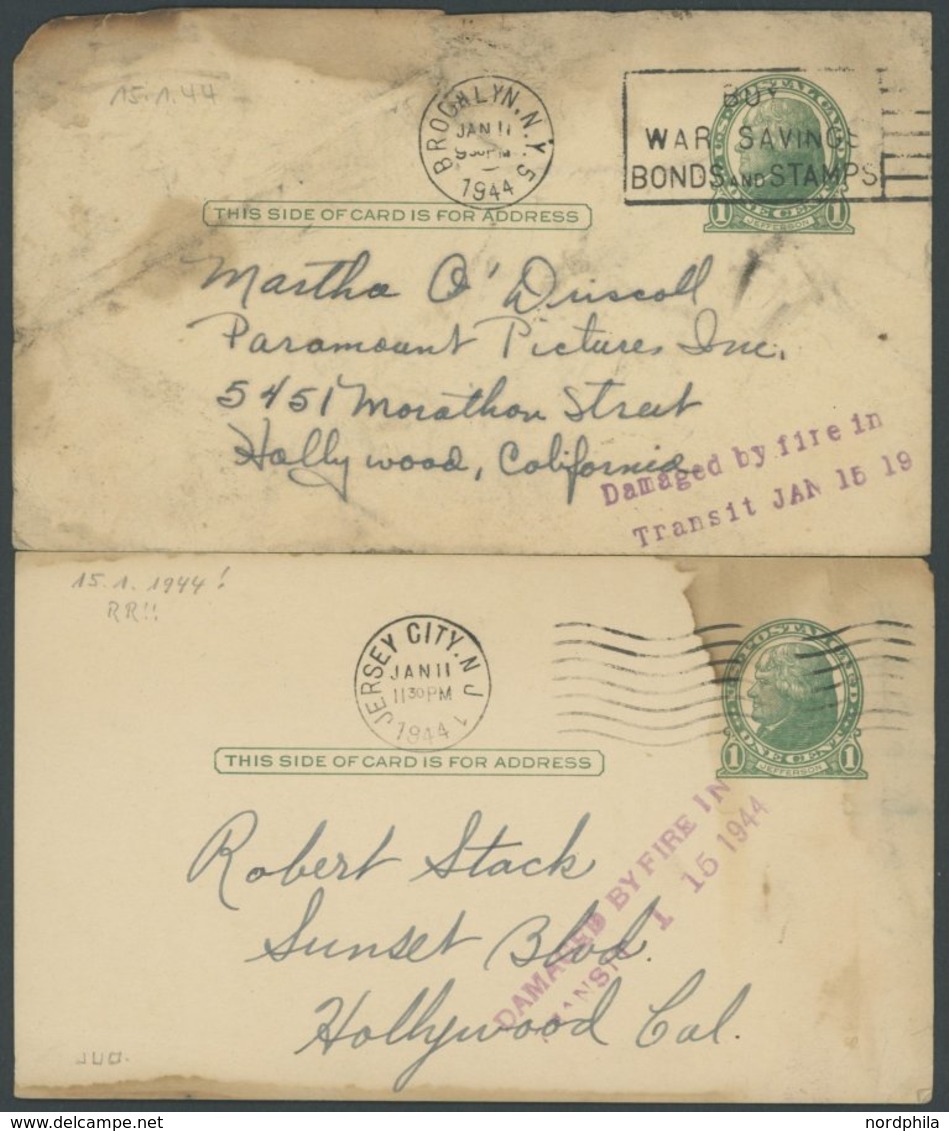 15.1.44
BROOKLYN, N.Y. 5
JAN 11
9 30 PM
1944
BUY
WAR SAVINGS
BONDS AND STAMPS
U.S. POSTAL CARD
1 ONE CENT 1
JEFFERSON
THIS SIDE OF CARD IS FOR ADDRESS
Martha O'Driscoll
Paramount Pictures Inc.
5451 Morathon Street
Hollywood, California
Damaged by fire in
Transit JAN 15 19
15.1.1944!
RR!!
JERSEY CITY, N J 1
JAN 11
11 30 PM
1944
U.S. POSTAL CARD
1 ONE CENT 1
JEFFERSON
THIS SIDE OF CARD IS FOR ADDRESS
Robert Stack
Sunset Blvd.
Hollywood Cal.
DAMAGED BY FIRE IN
TRANSIT 1 15 1944
www.delcampe.net
nordphila